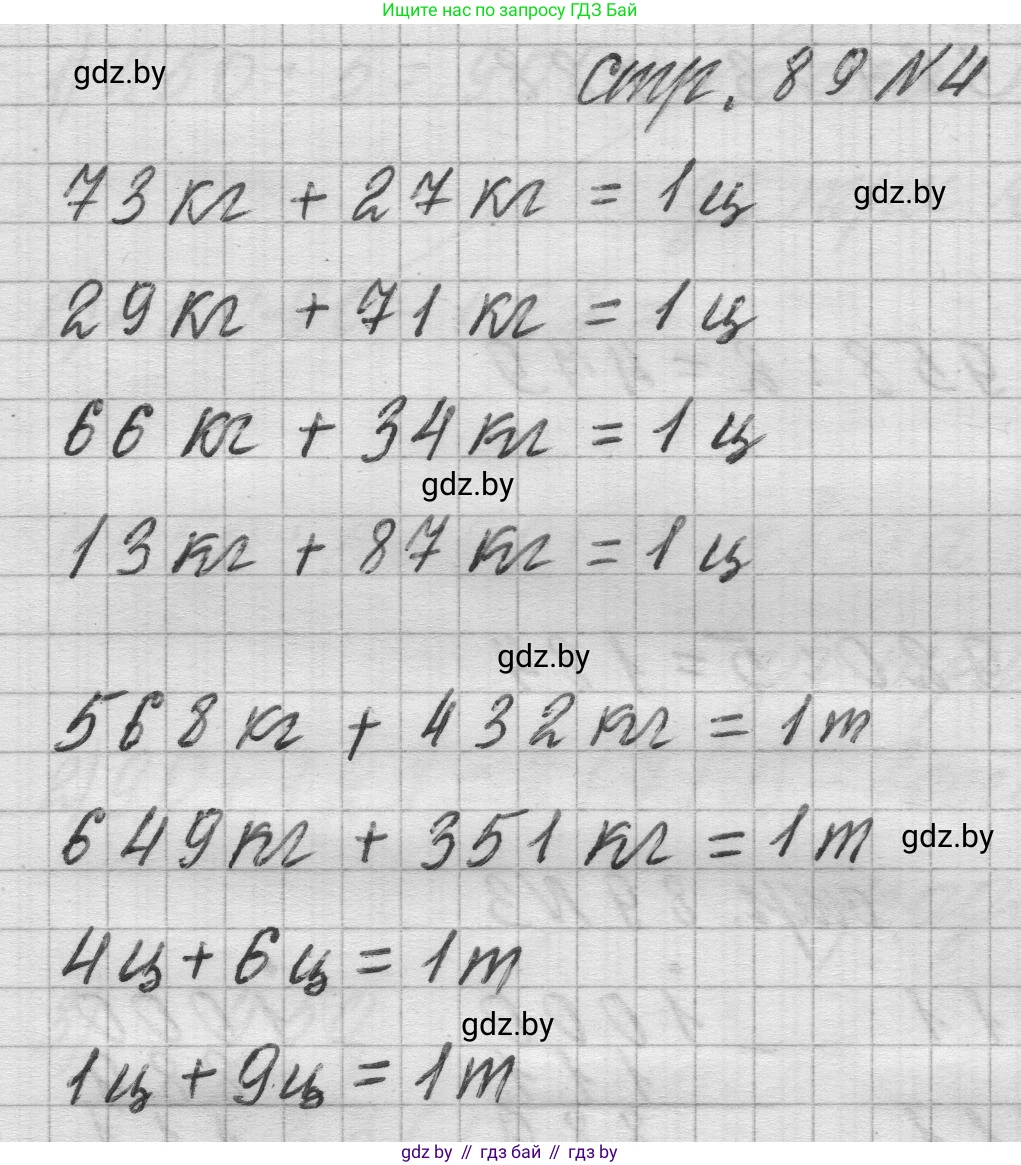 Ищите нас по запросу ГДЗ Бай
gdz.by
стр. 89 №4
73 кг + 27 кг = 1 ц
gdz.by
29 кг + 71 кг = 1 ц
66 кг + 34 кг = 1 ц
gdz.by
13 кг + 87 кг = 1 ц
gdz.by
568 кг + 432 кг = 1 т
649 кг + 351 кг = 1 т
gdz.by
4 ц + 6 ц = 1 т
gdz.by
1 ц + 9 ц = 1 т
gdz by // гдз бай // гдз by